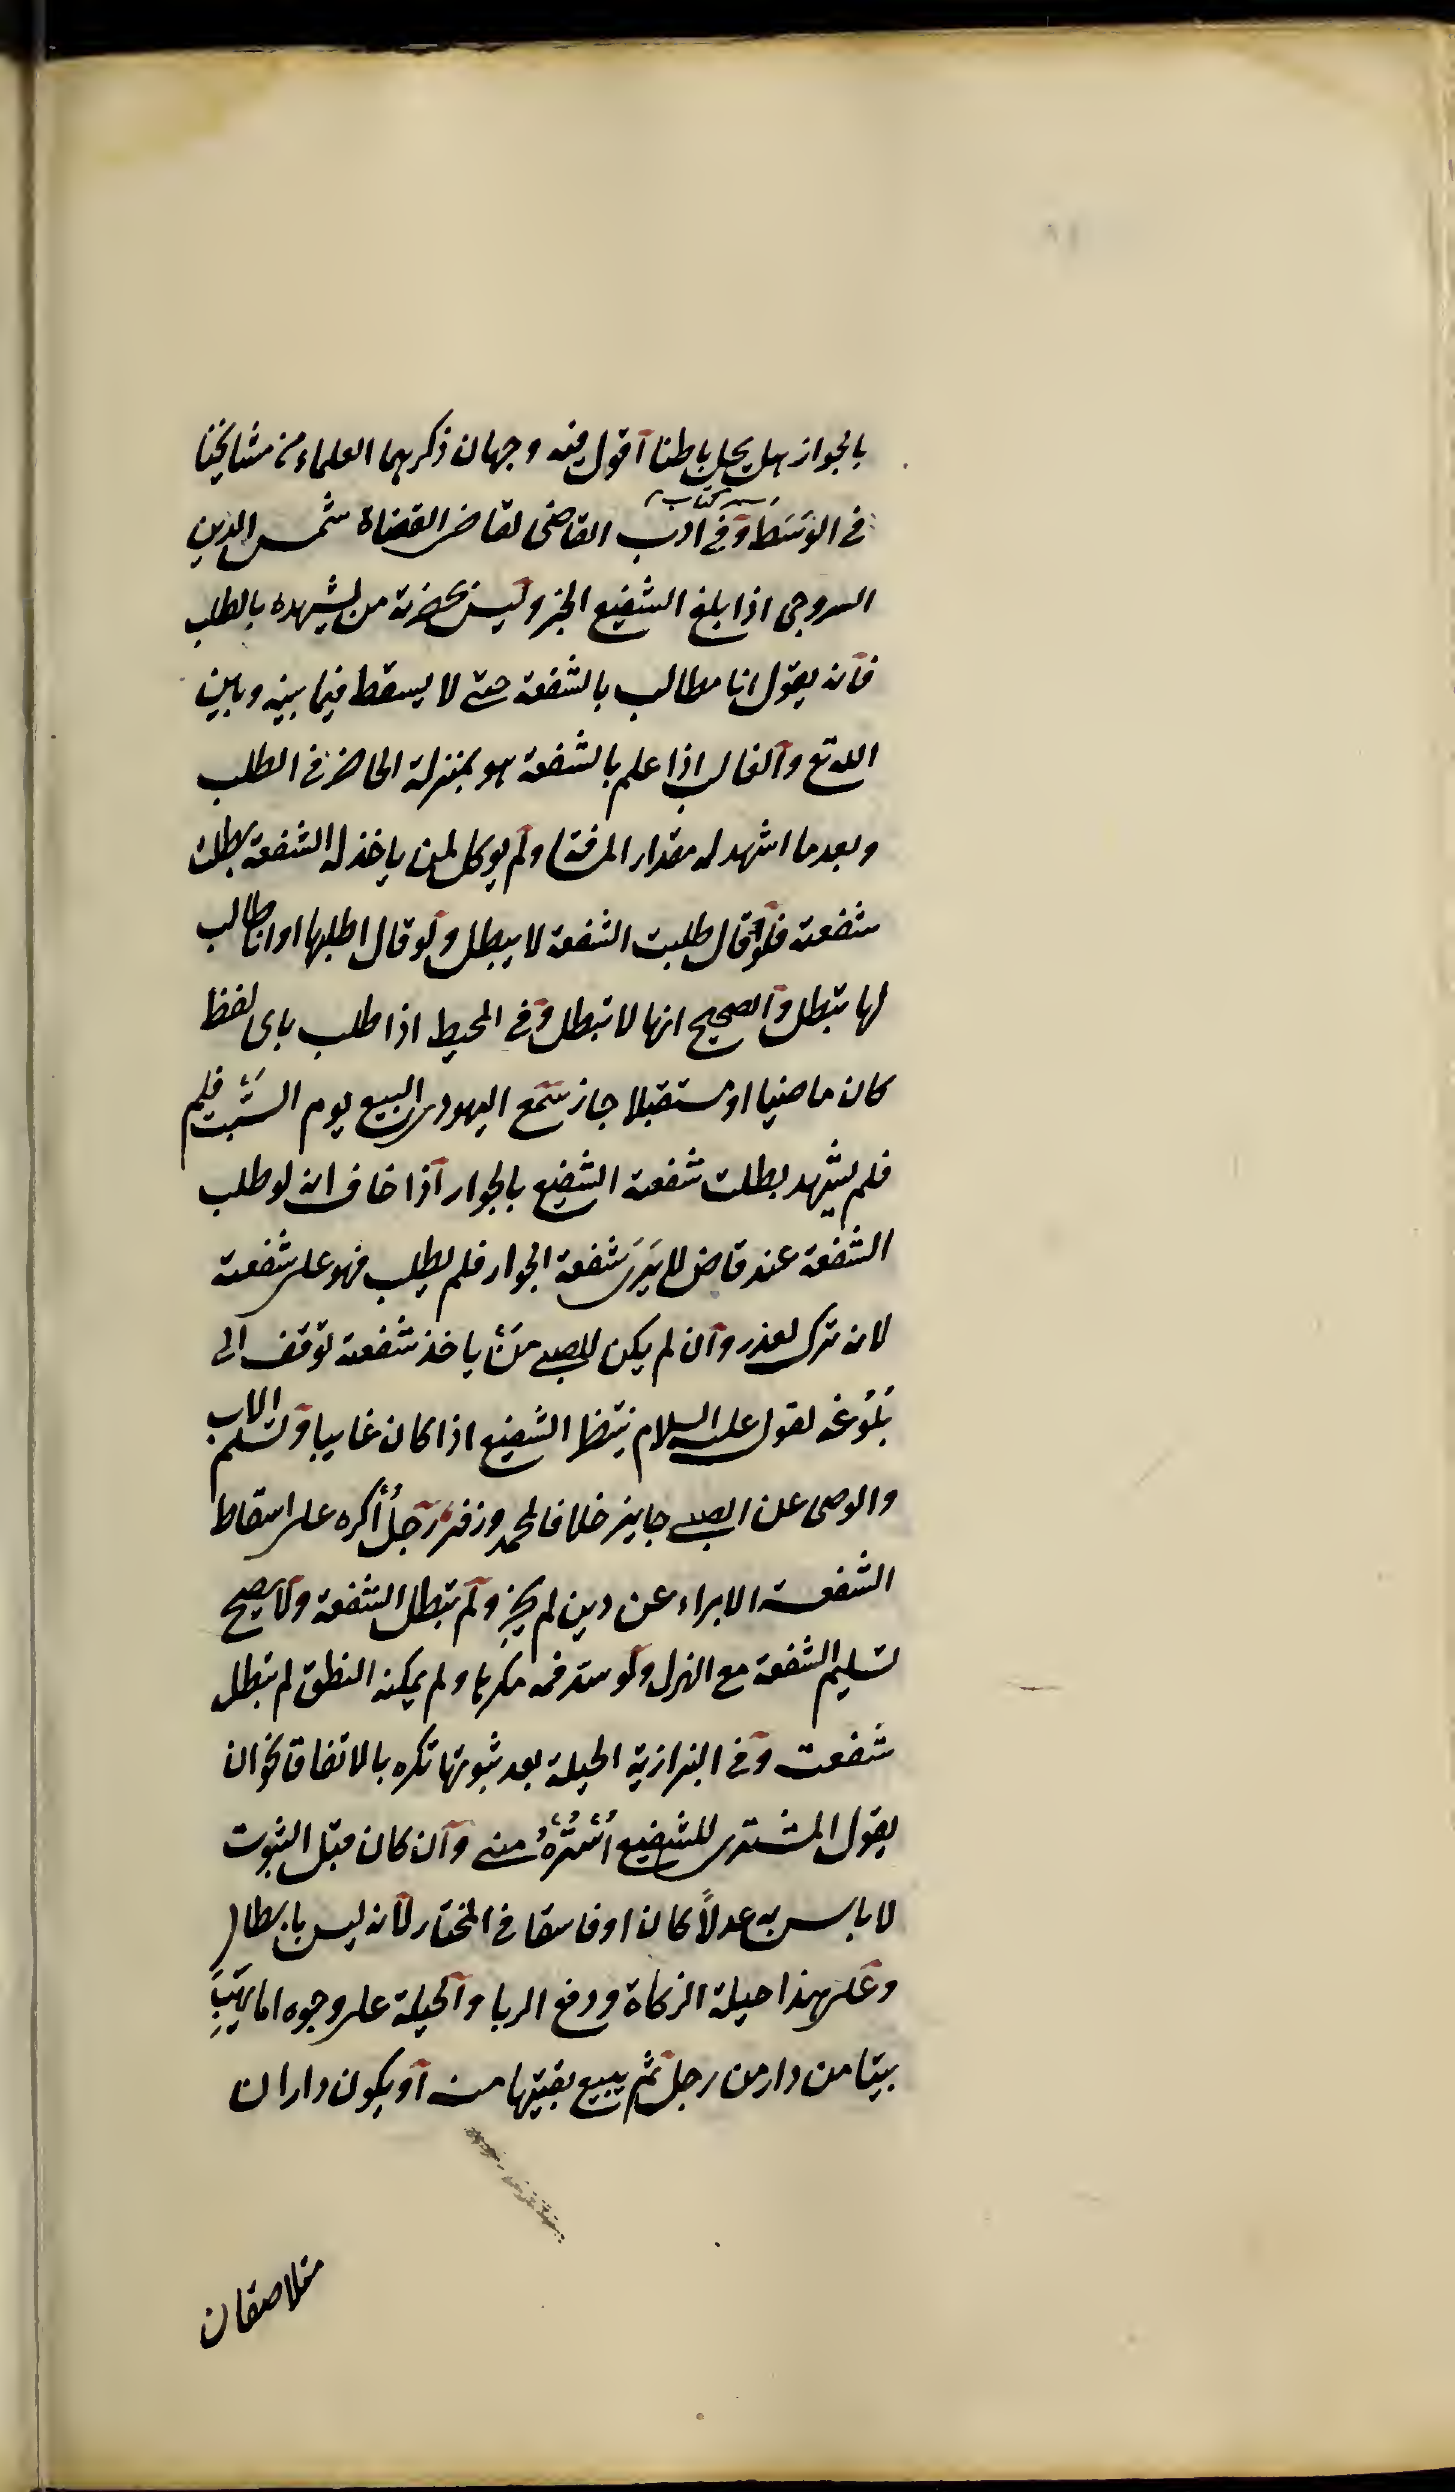 بالجواز هل يحل باطنا اقول فيه وجهان ذكرهما العلماء من مشايخنا
في الوسط وفي كتاب ادب القاضي لقاضي القضاة شمس الدين
السروجي اذا بلغ الشفيع الخبر وليس بحضرته من يشهده بالطلب
فانه يقول انا مطالب بالشفعة حتى لا يسقط فيما بينه وبين
الله تع والغائب اذا علم بالشفعة هو بمنزلة الحاضر في الطلب
وبعدما اشهد له مقدار المسافة ولم يوكل لمن ياخذ له الشفعة بطلت
شفعته فلو قال طلبت الشفعة لا يبطل ولو قال اطلبها او انا طالب
لها تبطل والصحيح انها لا تبطل وفي المحيط اذا طلب باي لفظ
كان ماضيا او مستقبلا جاز سمع اليهودي البيع يوم السَّبت فلم
فلم يشهد بطلت شفعته الشفيع بالجوار اذا خاف انه لو طلب
الشفعة عند قاض لا يَرَى شفعة الجوار فلم يطلب فهو على شفعته
لانه ترك لعذر وان لم يكن للصبي مَنْ ياخذ شفعته توقف الى
بُلُوغه لقوله عليه السلام ينتظر الشفيع اذا كان غايبا وتسليم الاب
والوصي على الصبي جايز خلافا لمحمد وزفر رجلٌ أُكره على اسقاط
الشفعة الابراء عن دين لم يجز ولم تبطل الشفعة ولا يصح
تسليم الشفعة مع الهزل ولو سد فمه مكرها ولم يمكنه النطق لم تبطل
شفعته وفي البزازية الحيلة بعد ثبوتها تكره بالاتفاق نحو ان
يقول المشتري للشفيع اُشْتُرْهُ مني وان كان قبل الثبوت
لا باس به عدلاً كان او فاسقا في المختار لانه ليس بابطال
وعلى هذا حيلة الزكاة ودفع الربا والحيلة على وجوه اما يَهَبُ
بيتا من دار من رجل ثم يبيع بقيتها منه او يكون داران
متلاصقان